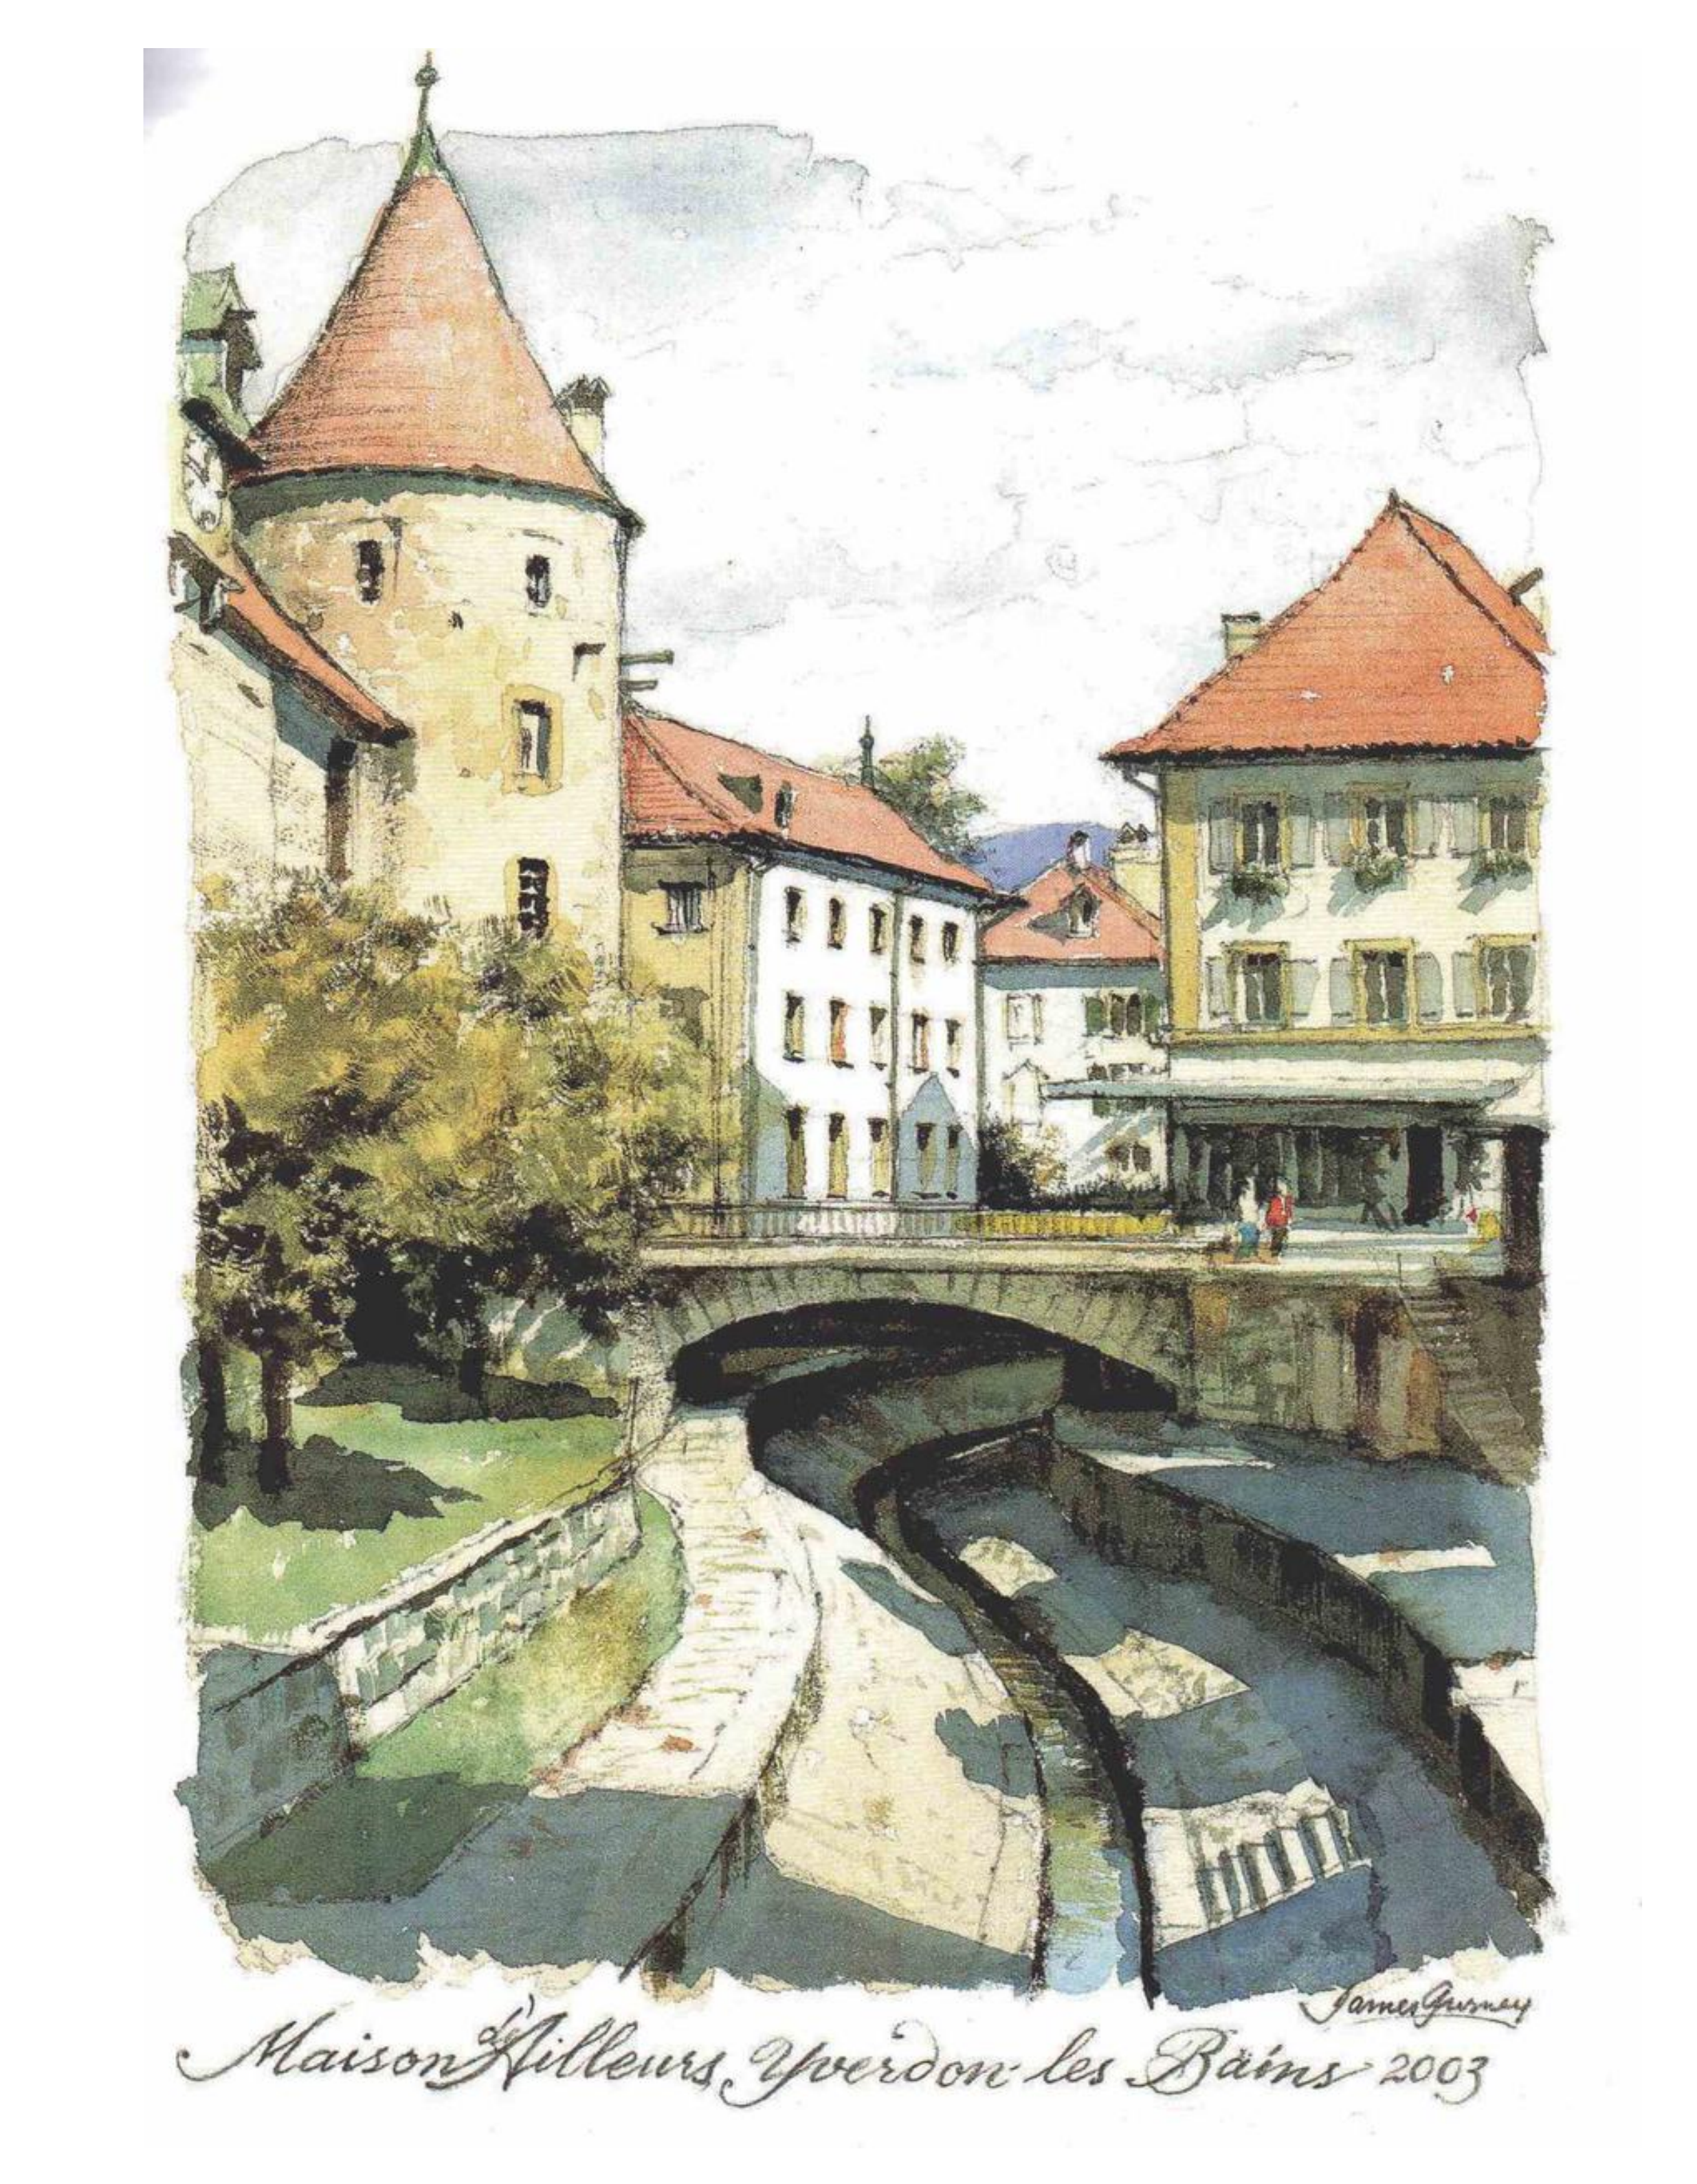 James Gurney
Maison d'Ailleurs, Yverdon-les Bains 2003